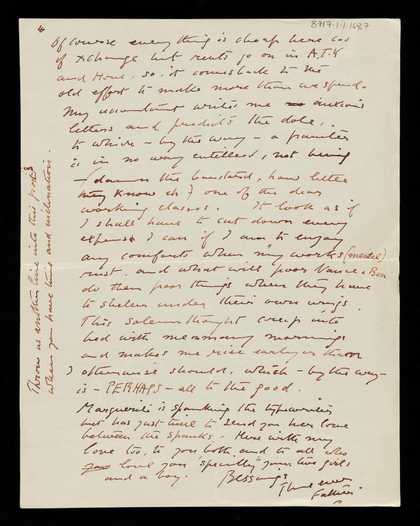 8717.1.1.1687
4
Of course everything is cheap here cos
of xchange but rents go on in A.T.K
and Home. so. it comes back to the
old effort to make more than we spend.
My accountant writes me anxious
letters and predicts the dole..
to which - by the way - a painter
is in no way entitled, not being
- damn the bastard, how little
they know it! one of the dear
working classes. It look as if
I shall have to cut down every
expense I can if I am to enjoy
any comforts when my works (mental)
rust. and what will poor Vance & Ben
do then poor things when they have
to shelter under their own wings.
This solemn thought creeps into
bed with me many mornings
and makes me rise earlyer than
I otherwise should. which - by the way -
is - PERHAPS - all to the good.
Marguerite is spanking the typewriter
but has just time to send you her love
between the spanks. Here with my
love too, to you both, and to all who
love you 'specially' your two girls
and a boy. Blessings
Thine ever
Father.
Throw us another line into this pond
when you have time and inclination.